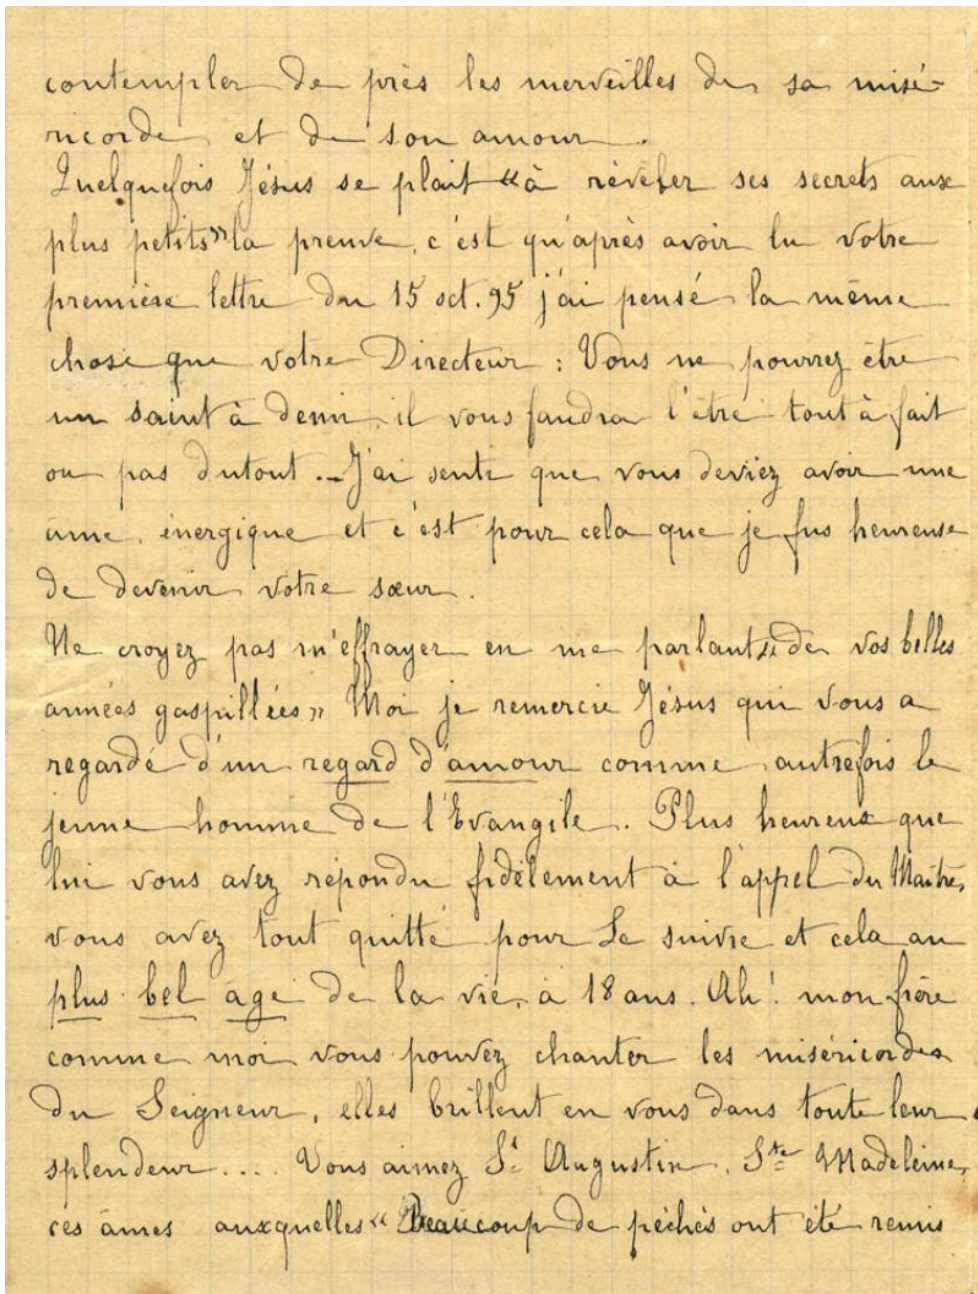 contempler de près les merveilles de sa misé-
ricorde et de son amour.
Quelquefois Jésus se plait «à révéler ses secrets aux
plus petits» la preuve, c'est qu'après avoir lu votre
première lettre du 15 oct. 95 j'ai pensé la même
chose que votre Directeur : Vous ne pourrez être
un saint à demi, il vous faudra l'être tout à fait
ou pas dutout. - J'ai senti que vous deviez avoir une
âme énergique et c'est pour cela que je fus heureuse
de devenir votre sœur.
Ne croyez pas m'effrayer en me parlant «de vos belles
années gaspillées» Moi je remercie Jésus qui vous a
regardé d'un regard d'amour comme autrefois le
jeune homme de l'Evangile. Plus heureux que
lui vous avez répondu fidèlement à l'appel du Maître,
vous avez tout quitté pour Le suivre et cela au
plus bel age de la vie, à 18 ans. Ah! mon frère
comme moi vous pouvez chanter les miséricordes
du Seigneur, elles brillent en vous dans toute leur
splendeur.... Vous aimez St Augustin, Ste Madeleine,
ces âmes auxquelles «Beaucoup de péchés ont été remis